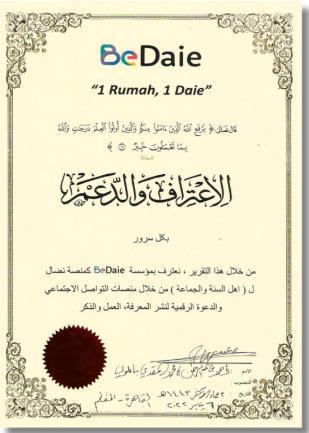 BeDaie
“1 Rumah, 1 Daie”
قال تعالى ﴿ يَرْفَعِ اللَّهُ الَّذِينَ ءَامَنُوا مِنكُمْ وَالَّذِينَ أُوتُوا الْعِلْمَ دَرَجَٰتٍ وَاللَّهُ
بِمَا تَعْمَلُونَ خَبِيرٌ ﴾
الاعتراف والدعم
بكل سرور
من خلال هذا التقرير ، نعترف بمؤسسة BeDaie كمنصة نضال
ل ( اهل السنة والجماعة ) من خلال منصات التواصل الاجتماعي
والدعوة الرقمية لنشر المعرفة، العمل والذكر
الاسم :
التاريخ :
٦ يناير ٢٠٢٢